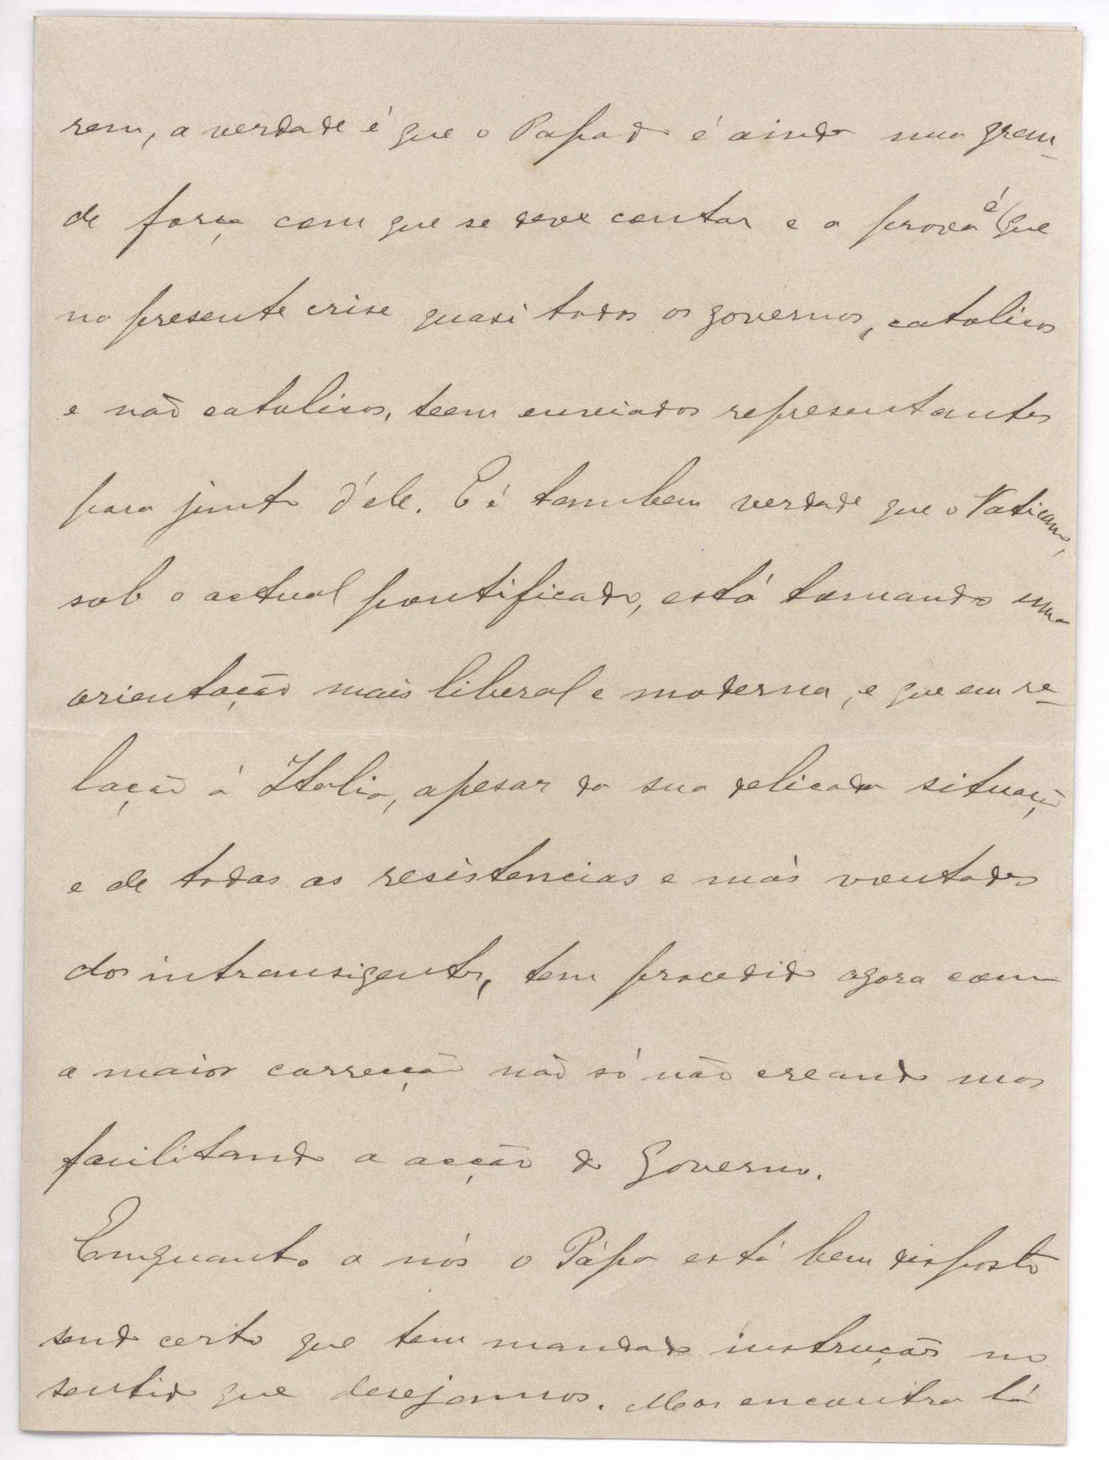 rem, a verdade é que o Papado é ainda uma gran-
de força com que se deve contar e a prova é que
na presente crise quasi todos os governos, catolicos
e não catolicos, teem enviados representantes
para junto d'ele. E é tambem verdade que o Vaticano,
sob o actual pontificado, está tomando uma
orientação mais liberal e moderna, e que em re-
lação á Italia, apesar da sua delicada situação
e de todas as resistencias e más vontades
dos intransigentes, tem procedido agora com
a maior correcção não só não creando mas
facilitando a acção do Governo.
Emquanto a nós o Pápa está bem disposto
sendo certo que tem mandado instruções no
sentido que desejamos. Mas encontra lá